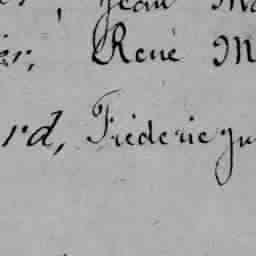 , Jean Ma
er, René M
rd, Fréderic ju